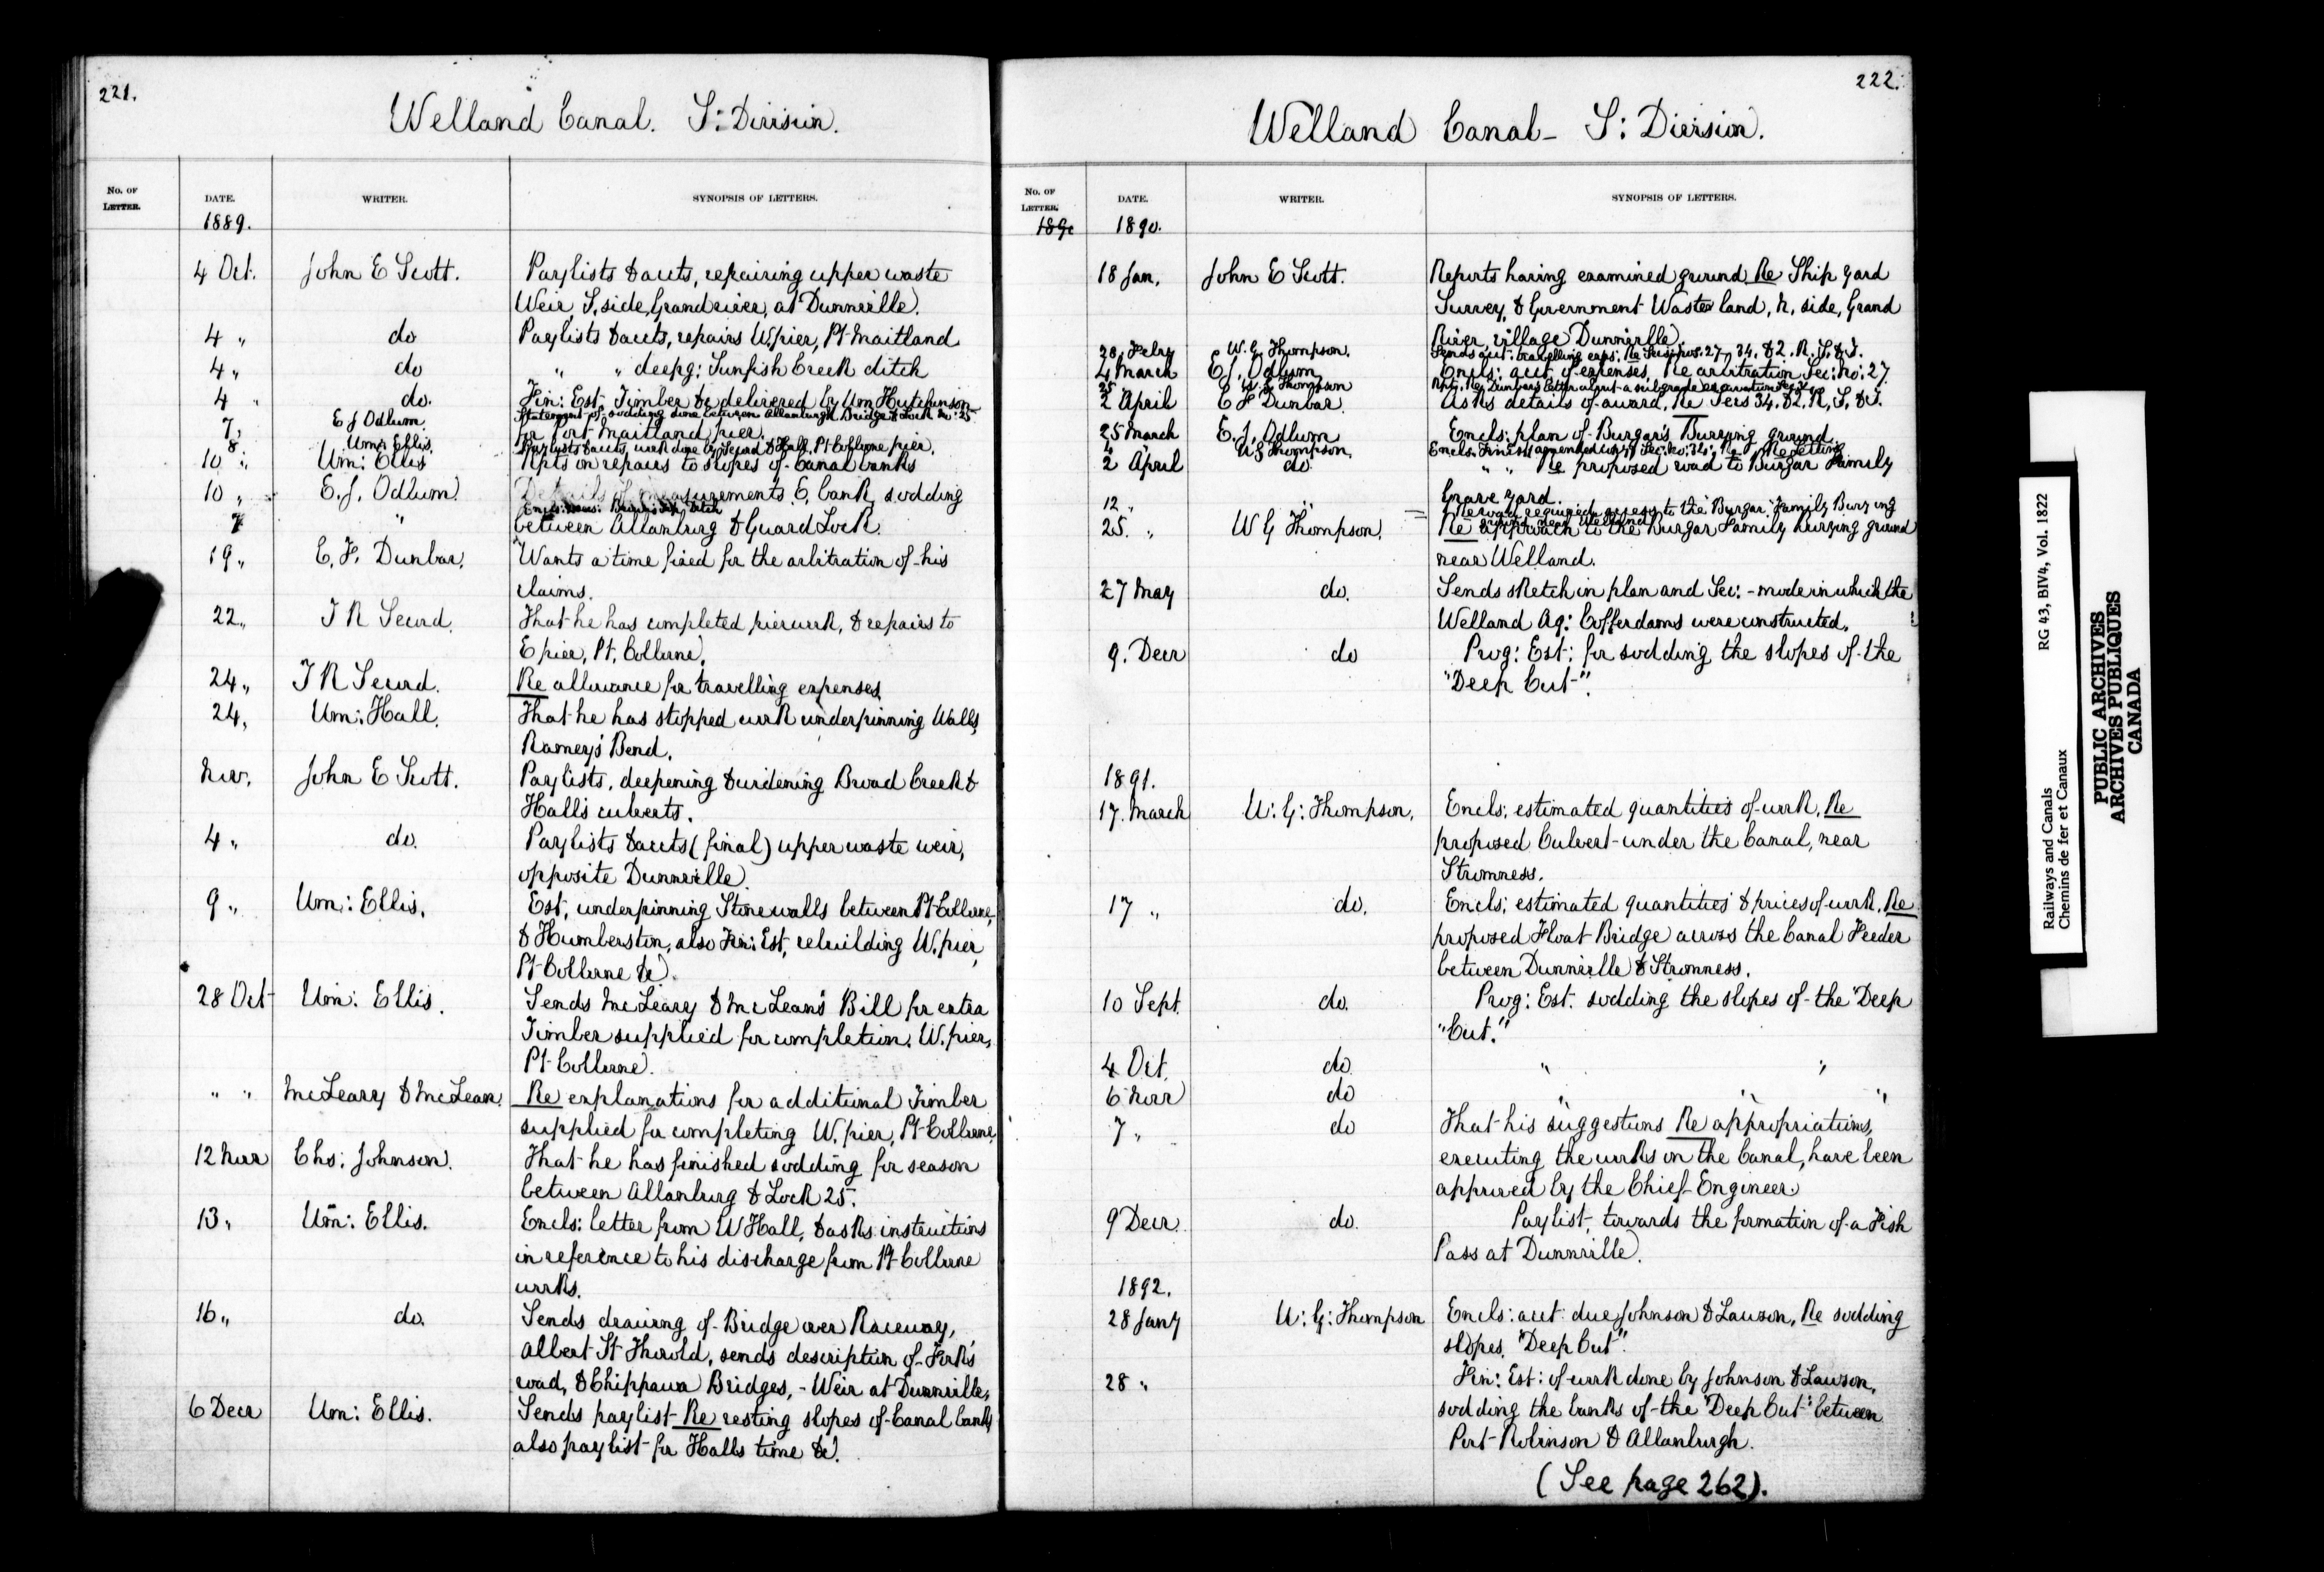 221.
Welland Canal. S: Division.
No. OF LETTER.
DATE.
WRITER.
SYNOPSIS OF LETTERS.
1889.
4 Oct. John E Scott. Paylists & accts, repairing upper waste
Weir, S. side, Grand river, at Dunnville.
4 " do Paylists & accts, repairs W. pier, Pt Maitland
4 " do " " deepg: Sunfish Creek ditch
4 " do. Fin: Est. Timber &c delivered by Wm Hutchinson
7, E J Odlum. Statement of sodding done between Allanburgh Bridge & Lock No: 25
for Port Maitland pier.
8 Wm: Ellis. Paylists & accts, work done by Secord & Hall, Pt Colborne pier.
10 " Wm: Ellis Rpts on repairs to slopes of Canal banks
10 " E. J. Odlum. Details of measurements E. bank sodding
7 "
between Allanburg & Guard Lock.
19 " E. F. Dunbar. Wants a time fixed for the arbitration of his
claims.
22 " J R Secord. That he has completed pier work, & repairs to
E pier, Pt. Colborne.
24 " J R Secord. Re allowance for travelling expenses.
24, Wm: Hall. That he has stopped work underpinning Walls,
Ramey's Bend.
Nov. John E Scott. Paylists, deepening & widening Broad Creek &
Halls culverts.
4 " do. Paylists & accts (final) upper waste weir,
opposite Dunnville.
9 " Wm: Ellis. Est, underpinning Stone walls between Pt Colborne,
& Humberston, also Fin: Est, rebuilding W. pier,
Pt Colborne &c.
28 Oct Wm: Ellis. Sends McCleary & McLean's Bill for extra
Timber supplied for completion. W. pier,
Pt Colborne.
" " McCleary & McLean. Re explanations for additional Timber
supplied for completing W. pier, Pt Colborne,
12 Novr Chs: Johnson. That he has finished sodding for season
between Allanburg & Lock 25.
13 " Wm: Ellis. Encls: letter from W Hall, & asks instructions
in reference to his discharge from Pt Colborne
works.
16 " do. Sends drawing of Bridge over Raceway,
Albert St Thorold, sends description of Forks
road, & Chippawa Bridges, - Weir at Dunnville,
6 Decr Wm: Ellis. Sends paylist Re resting slopes of Canal banks
also paylist for Halls time &c.
222.
Welland Canal - S: Division.
No. OF LETTER.
DATE.
WRITER.
SYNOPSIS OF LETTERS.
189c 1890.
18 Jan. John E Scott. Reports having examined ground Re Ship yard
Survey, & Government Waste land, N. side, Grand
River, village Dunnville.
28 Feby W. G Thompson. Sends acct: travelling exps: Re Secs nos: 27, 34, & 2. R, S. & T.
4 March E J. Odlum Encls: acct of expenses, Re arbitration Sec: no: 27
25 " W G Thompson
2 April E F Dunbar Asks details of award, Re Secs 34. & 2. R, S, & T.
25 March E. J. Odlum Encls: plan of Burgar's Burying ground.
W G Thompson.
2 April do. " " Re proposed road to Burgar Family
Grave yard.
12 " " Re road required access to the Burgar Family Burying
ground near Welland
25. " W G Thompson. Re approach to the Burgar Family burying ground
near Welland.
27 May do. Sends sketch in plan and Sec: - mode in which the
Welland Aq: Cofferdams were constructed.
9. Decr do Prog: Est: for sodding the slopes of the
"Deep Cut".
1891.
17. March W: G: Thompson. Encls: estimated quantities of work, Re
proposed Culvert under the Canal, near
Stromness.
17 " do. Encls: estimated quantities & prices of work, Re
proposed Float Bridge across the Canal Feeder
between Dunnville & Stromness.
10 Sept. do. Prog: Est. sodding the slopes of the "Deep
"Cut."
4 Oct. do " "
6 Novr do " " "
7 " do That his suggestions Re appropriations,
executing the works on the Canal, have been
approved by the Chief Engineer
9 Decr. do. Paylist, towards the formation of a Fish
Pass at Dunnville.
1892.
28 Jany W: G: Thompson Encls: acct: due Johnson & Lawson, Re sodding
slopes, "Deep Cut".
28 " Fin: Est: of work done by Johnson & Lawson,
sodding the banks of the "Deep Cut" between
Port Robinson & Allanburgh.
(See page 262).
Railways and Canals
Chemins de fer et Canaux
RG 43, BIV4, Vol. 1822
PUBLIC ARCHIVES
ARCHIVES PUBLIQUES
CANADA